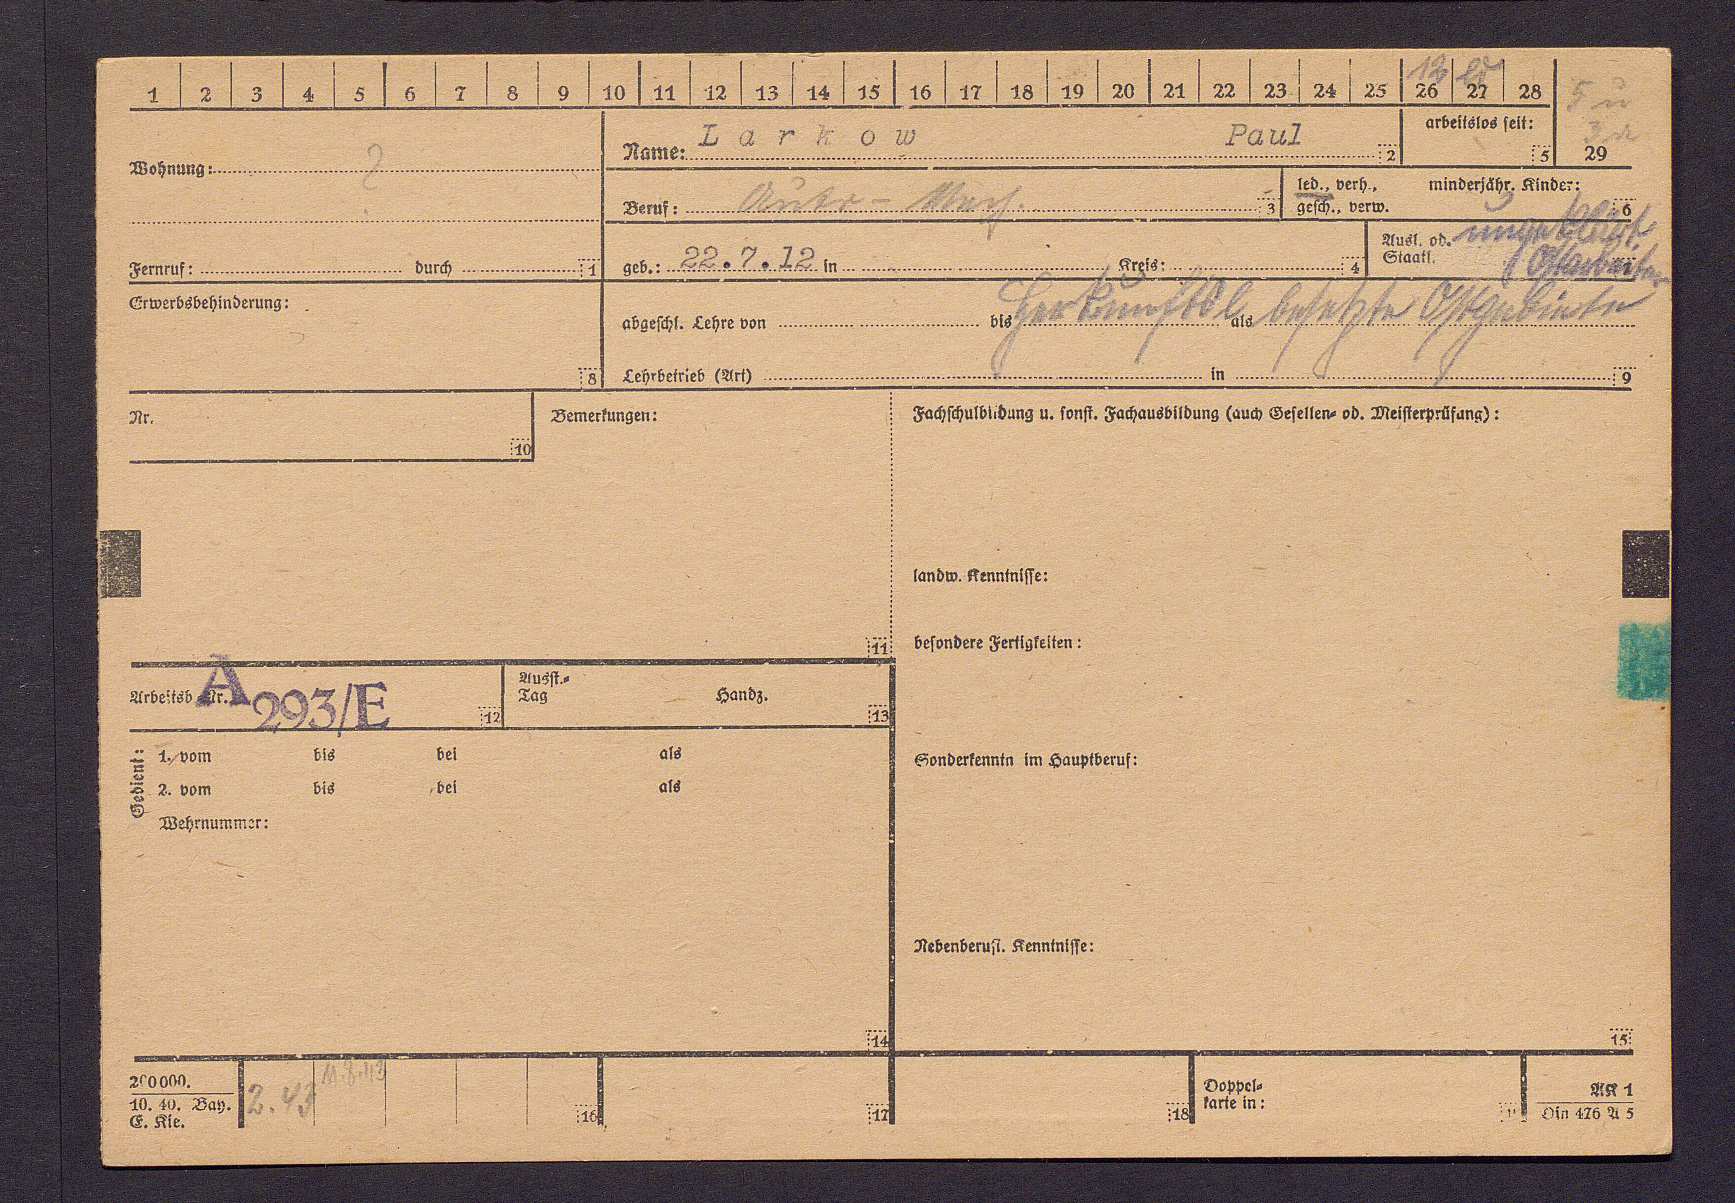 1 2 3 4 5 6 7 8 9 10 11 12 13 14 15 16 17 18 19 20 21 22 23 24 25 26 27 28
12
5 u
29
Wohnung: ?
Name: Larkow Paul 2
arbeitslos seit: 5
Beruf: Auto-Mech. 3
led., verh., gesch., verw.
minderjähr. Kinder: 6
Fernruf: durch 1
geb.: 22.7.12 in Kreis: 4
Ausl. od. Staatl. ungeklärt
Ostarbeiter
Erwerbsbehinderung: 8
abgeschl. Lehre von bis als
Herkunftsl besetzte Ostgebiete
Lehrbetrieb (Art) in 9
Nr. 10
Bemerkungen: 11
Fachschulbildung u. sonst. Fachausbildung (auch Gesellen- od. Meisterprüfung):
landw. Kenntnisse:
besondere Fertigkeiten:
Arbeitsb.-Nr. A 293/E 12
Ausst.-Tag Handz. 13
Gedient:
1. vom bis bei als
2. vom bis bei als
Wehrnummer:
14
Sonderkenntn im Hauptberuf:
Nebenberufl. Kenntnisse:
15
200000.
10. 40. Bay.
E. Kie.
2.43 11.8.43
16 17 18
Doppel-
karte in:
AK 1
Din 476 A 5